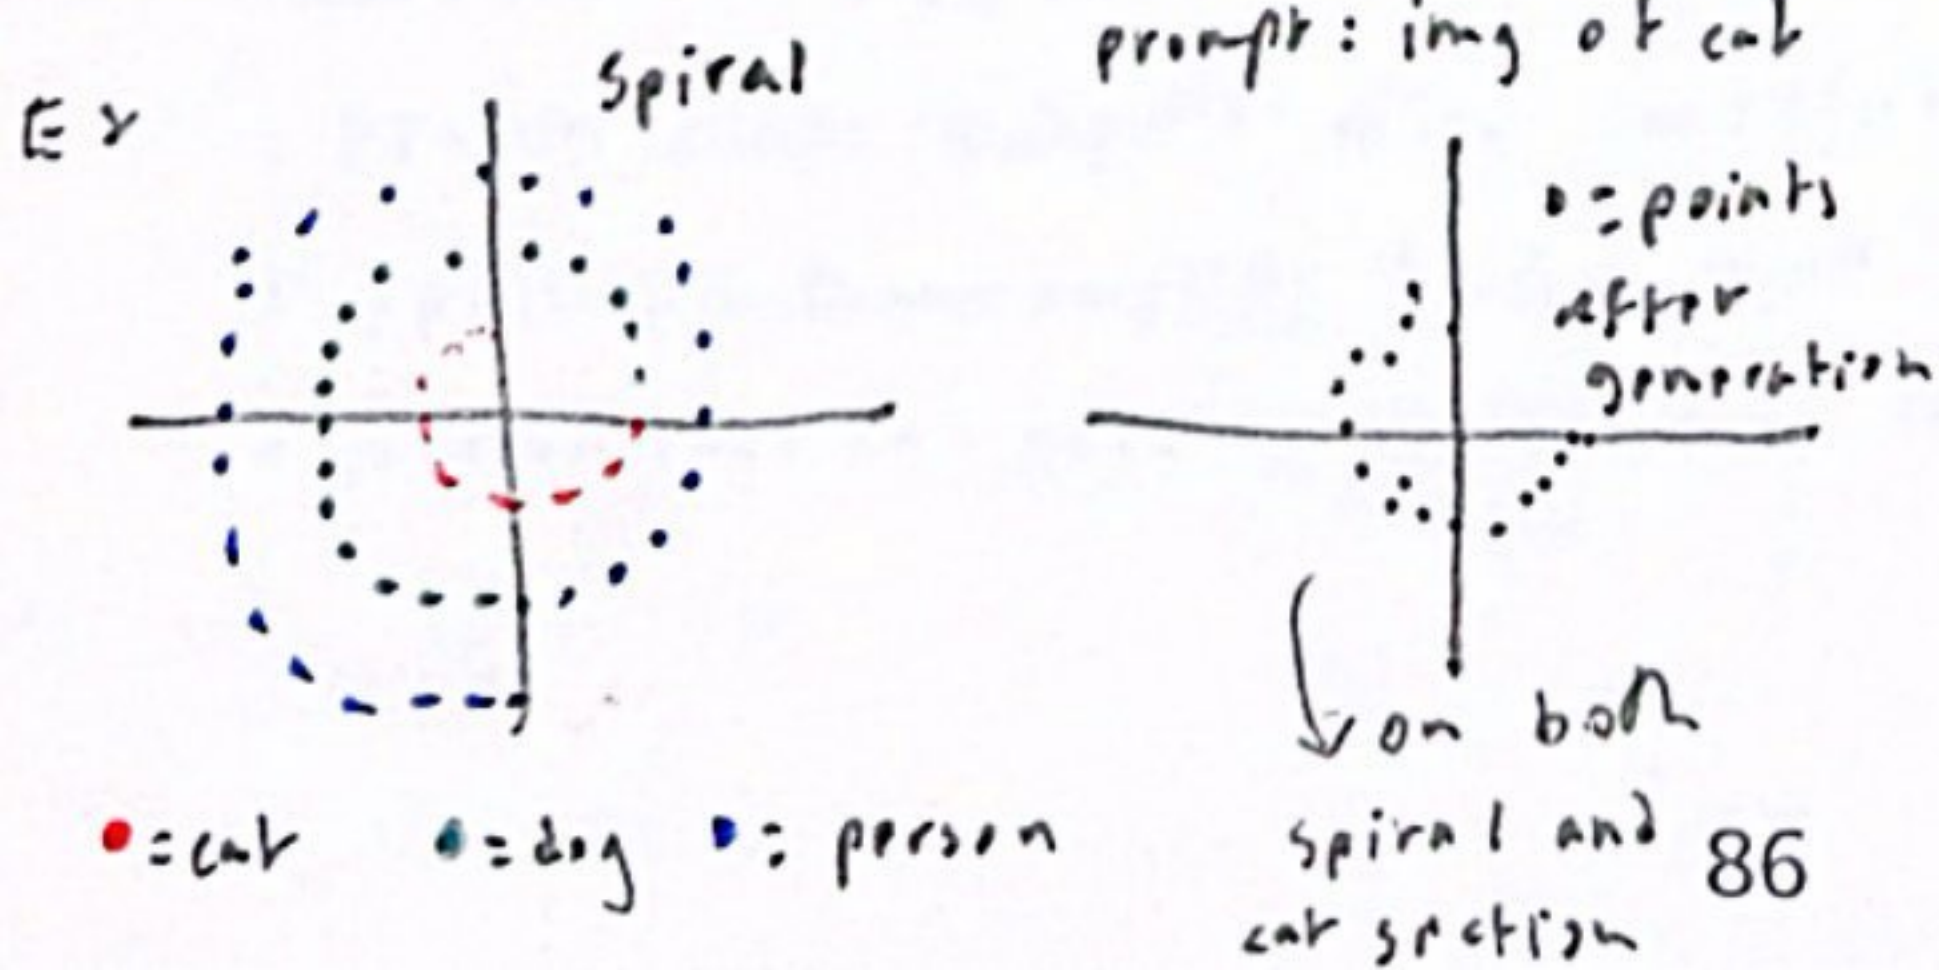 Ex
Spiral
prompt: img of cat
• = points
after
generation
on both
spiral and
cat section
• = cat • = dog • = person
86